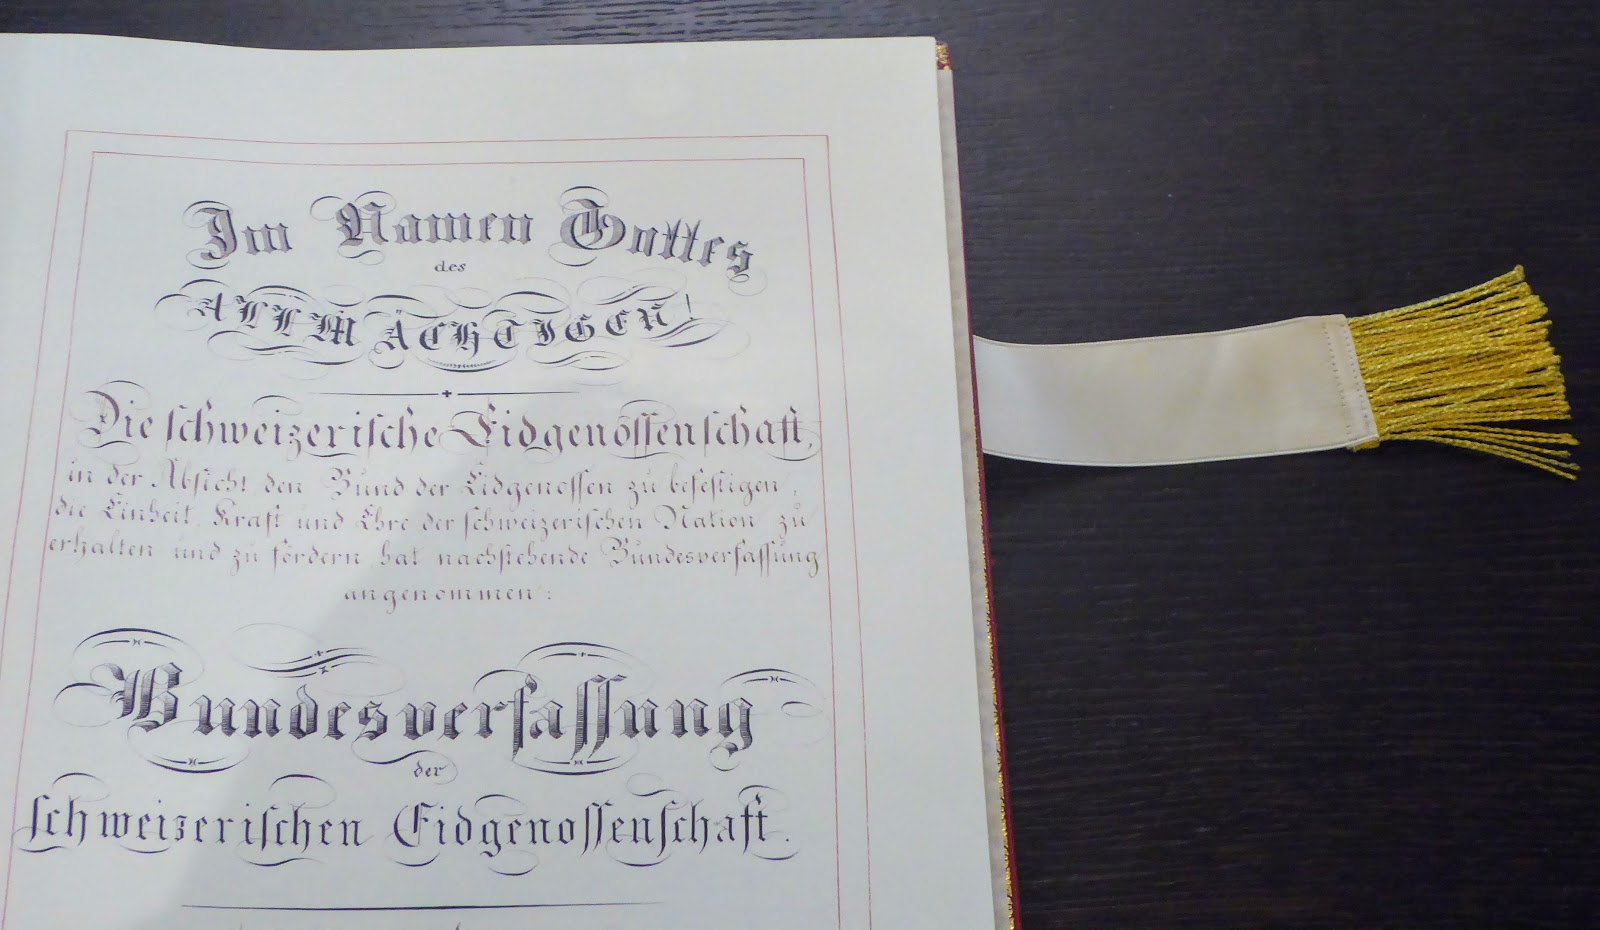 Im Namen Gottes
des
ALLMÄCHTIGEN!
Die schweizerische Eidgenossenschaft,
in der Absicht, den Bund der Eidgenossen zu befestigen,
die Einheit, Kraft und Ehre der schweizerischen Nation zu
erhalten und zu fördern, hat nachstehende Bundesverfassung
angenommen:
Bundesverfassung
der
schweizerischen Eidgenossenschaft.